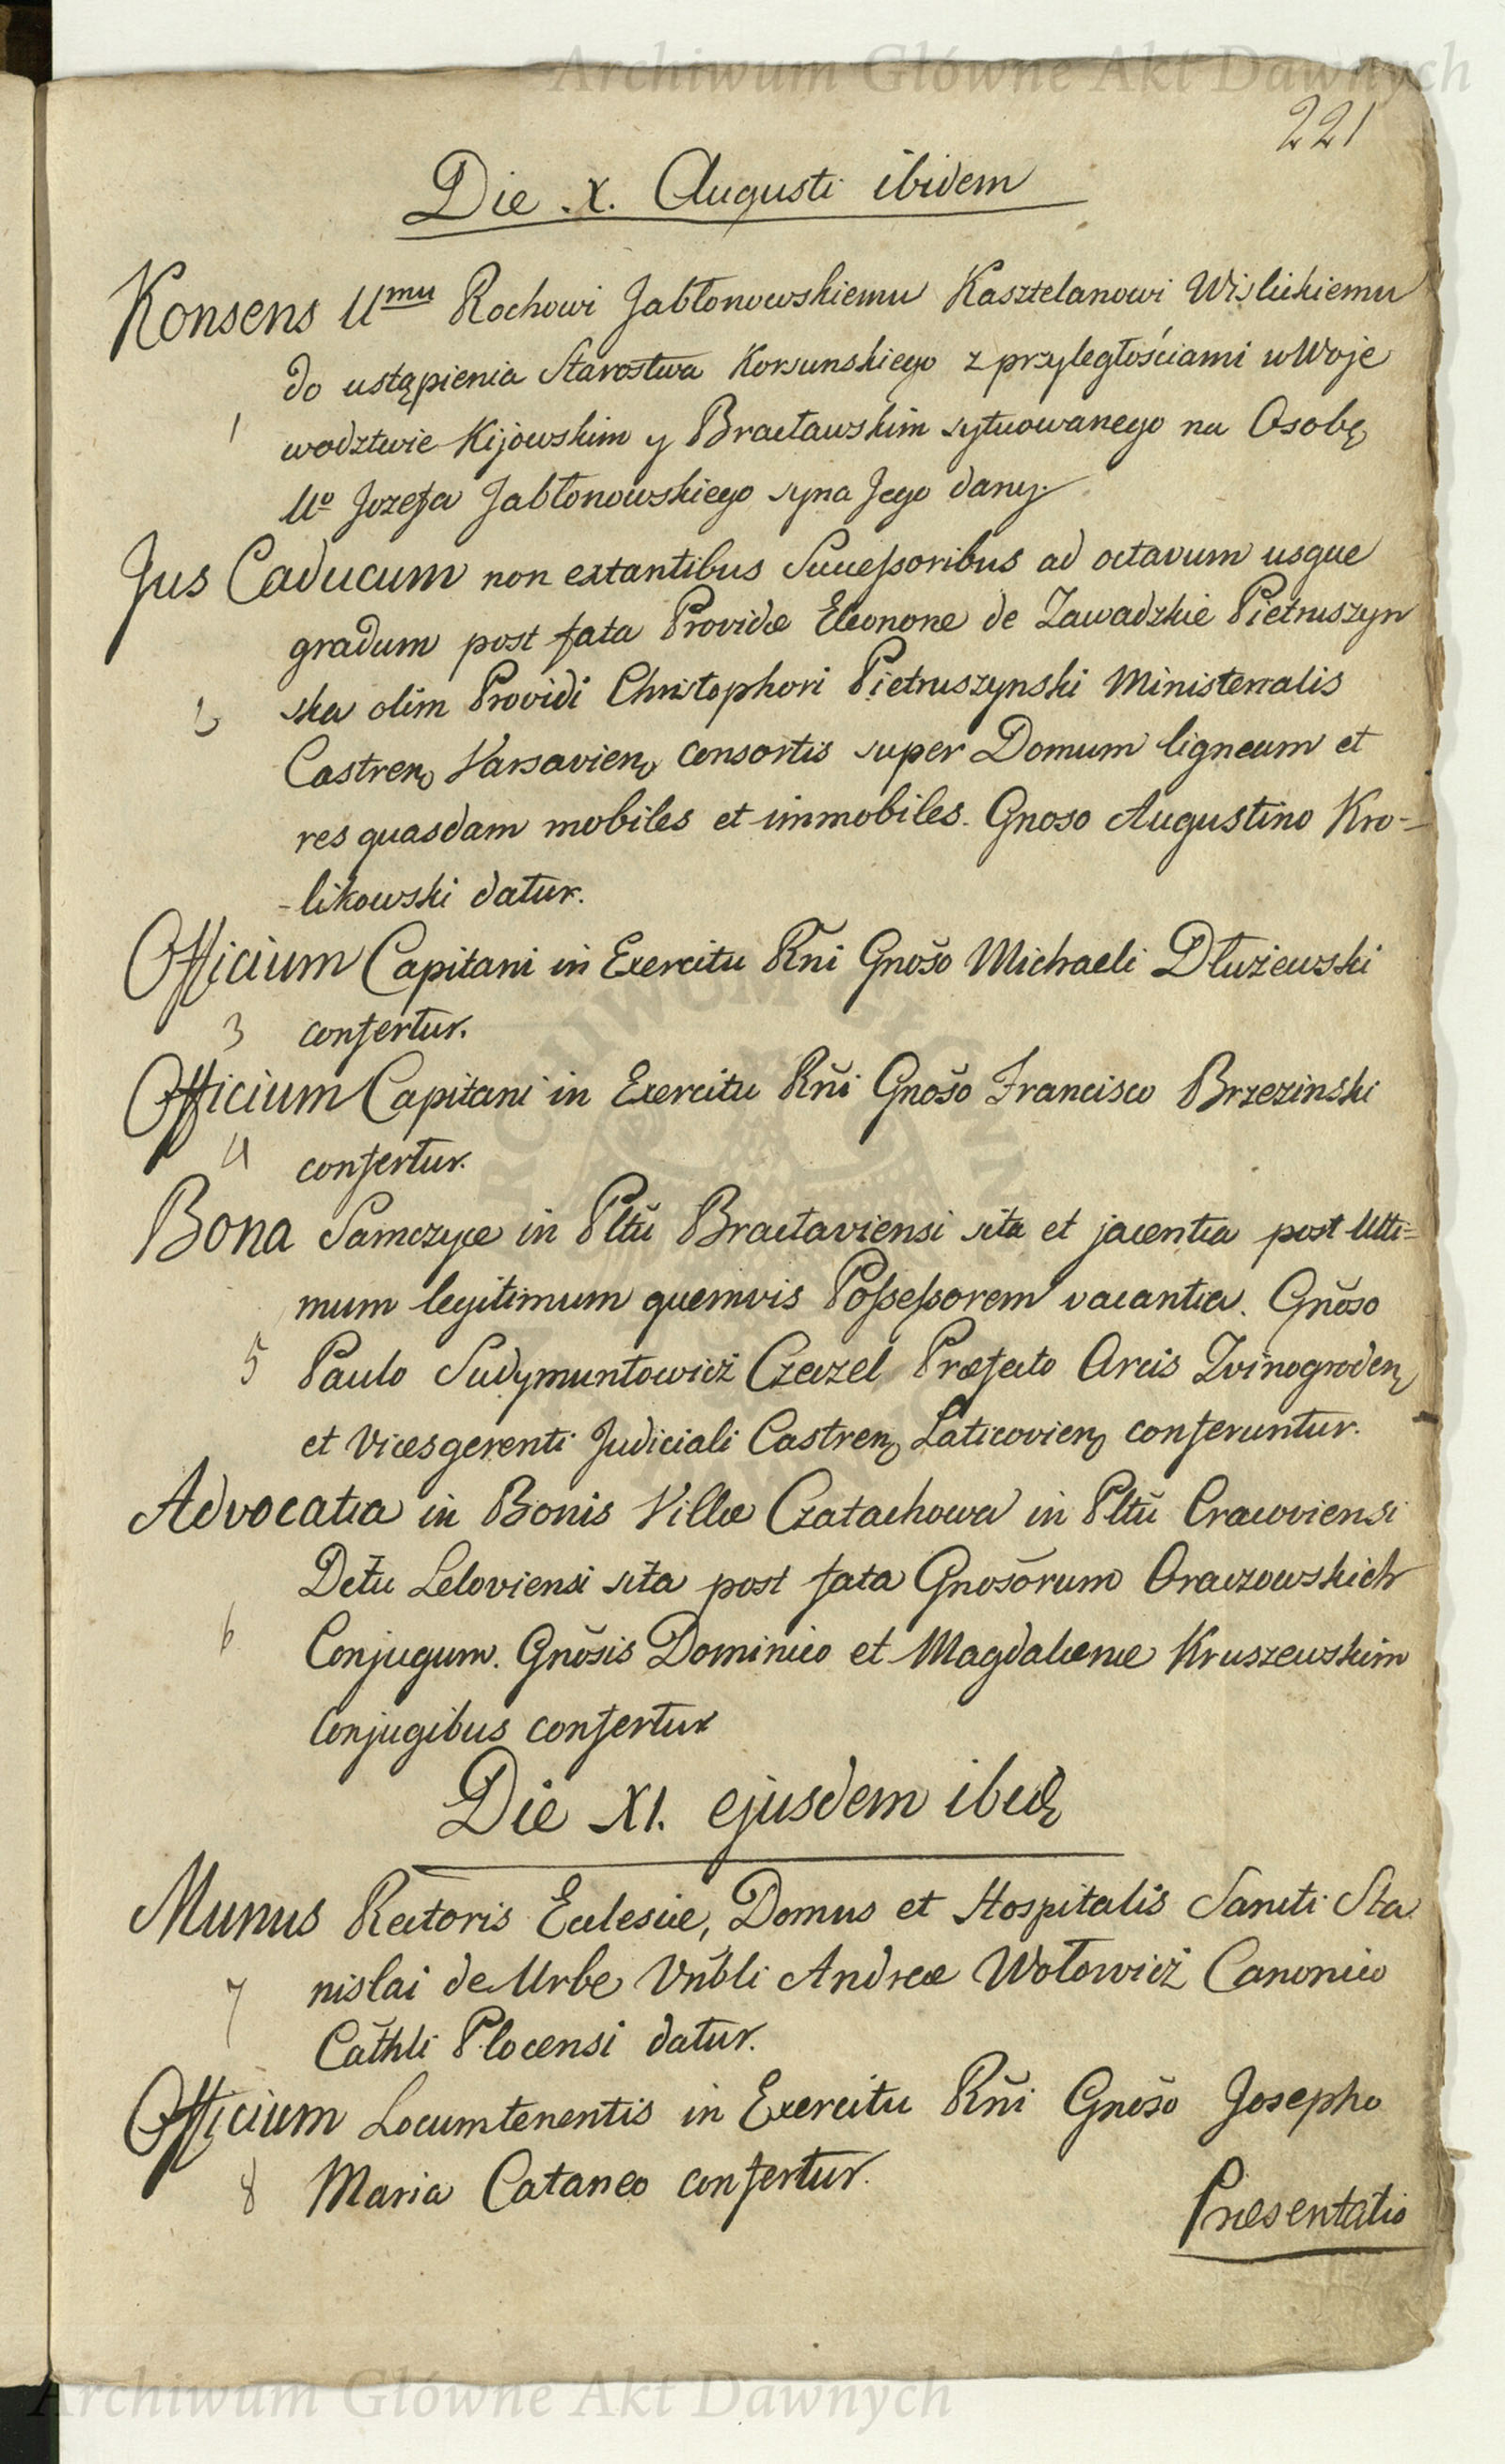 Archiwum Główne Akt Dawnych
221
Die X. Augusti ibidem
Konsens Umu Rochowi Jabłonowskiemu Kasztelanowi Wislickiemu
do ustąpienia Starostwa Korsunskiego z przyległościami w Woje
1 wodztwie Kijowskim y Bracławskim sytuowanego na Osobę
Uo Jozefa Jabłonowskiego syna Jego dany.
Jus Caducum non extantibus Successoribus ad octavum usque
gradum post fata Providæ Eleonoræ de Zawadzkie Pietruszyn
2 ska olim Providi Christophori Pietruszynski Ministerialis
Castren Varsavien consortis super Domum ligneum et
res quasdam mobiles et immobiles. Gnoso Augustino Kro-
-likowski datur.
Officium Capitani in Exercitu Rni Gnoso Michaeli Dłużewski
3 confertur.
Officium Capitani in Exercitu Rni Gnoso Francisco Brzezinski
4 confertur.
Bona Samczyce in Pltu Braclaviensi sita et jacentia post Ulti=
mum legitimum quemvis Possessorem vacantia. Gnoso
5 Paulo Sudymuntowicz Czeczel Præfecto Arcis Zvinogroden
et Vicesgerenti Judiciali Castren Laticovien conferuntur.
Advocatia in Bonis Villæ Czatachowa in Pltu Cracoviensi
Dctu Leloviensi sita post fata Gnosorum Oraczowskich
6 Conjugum. Gnosis Dominico et Magdalenæ Kruszewskim
Conjugibus confertur
Die XI. ejusdem ibid
Munus Rectoris Ecclesiæ, Domus et Hospitalis Sancti Sta
7 nislai de Urbe Vnbli Andreæ Wołowicz Canonico
Cathli Plocensi datur.
Officium Locumtenentis in Exercitu Rni Gnoso Josepho
8 Maria Cataneo confertur.
Præsentatio
Archiwum Główne Akt Dawnych